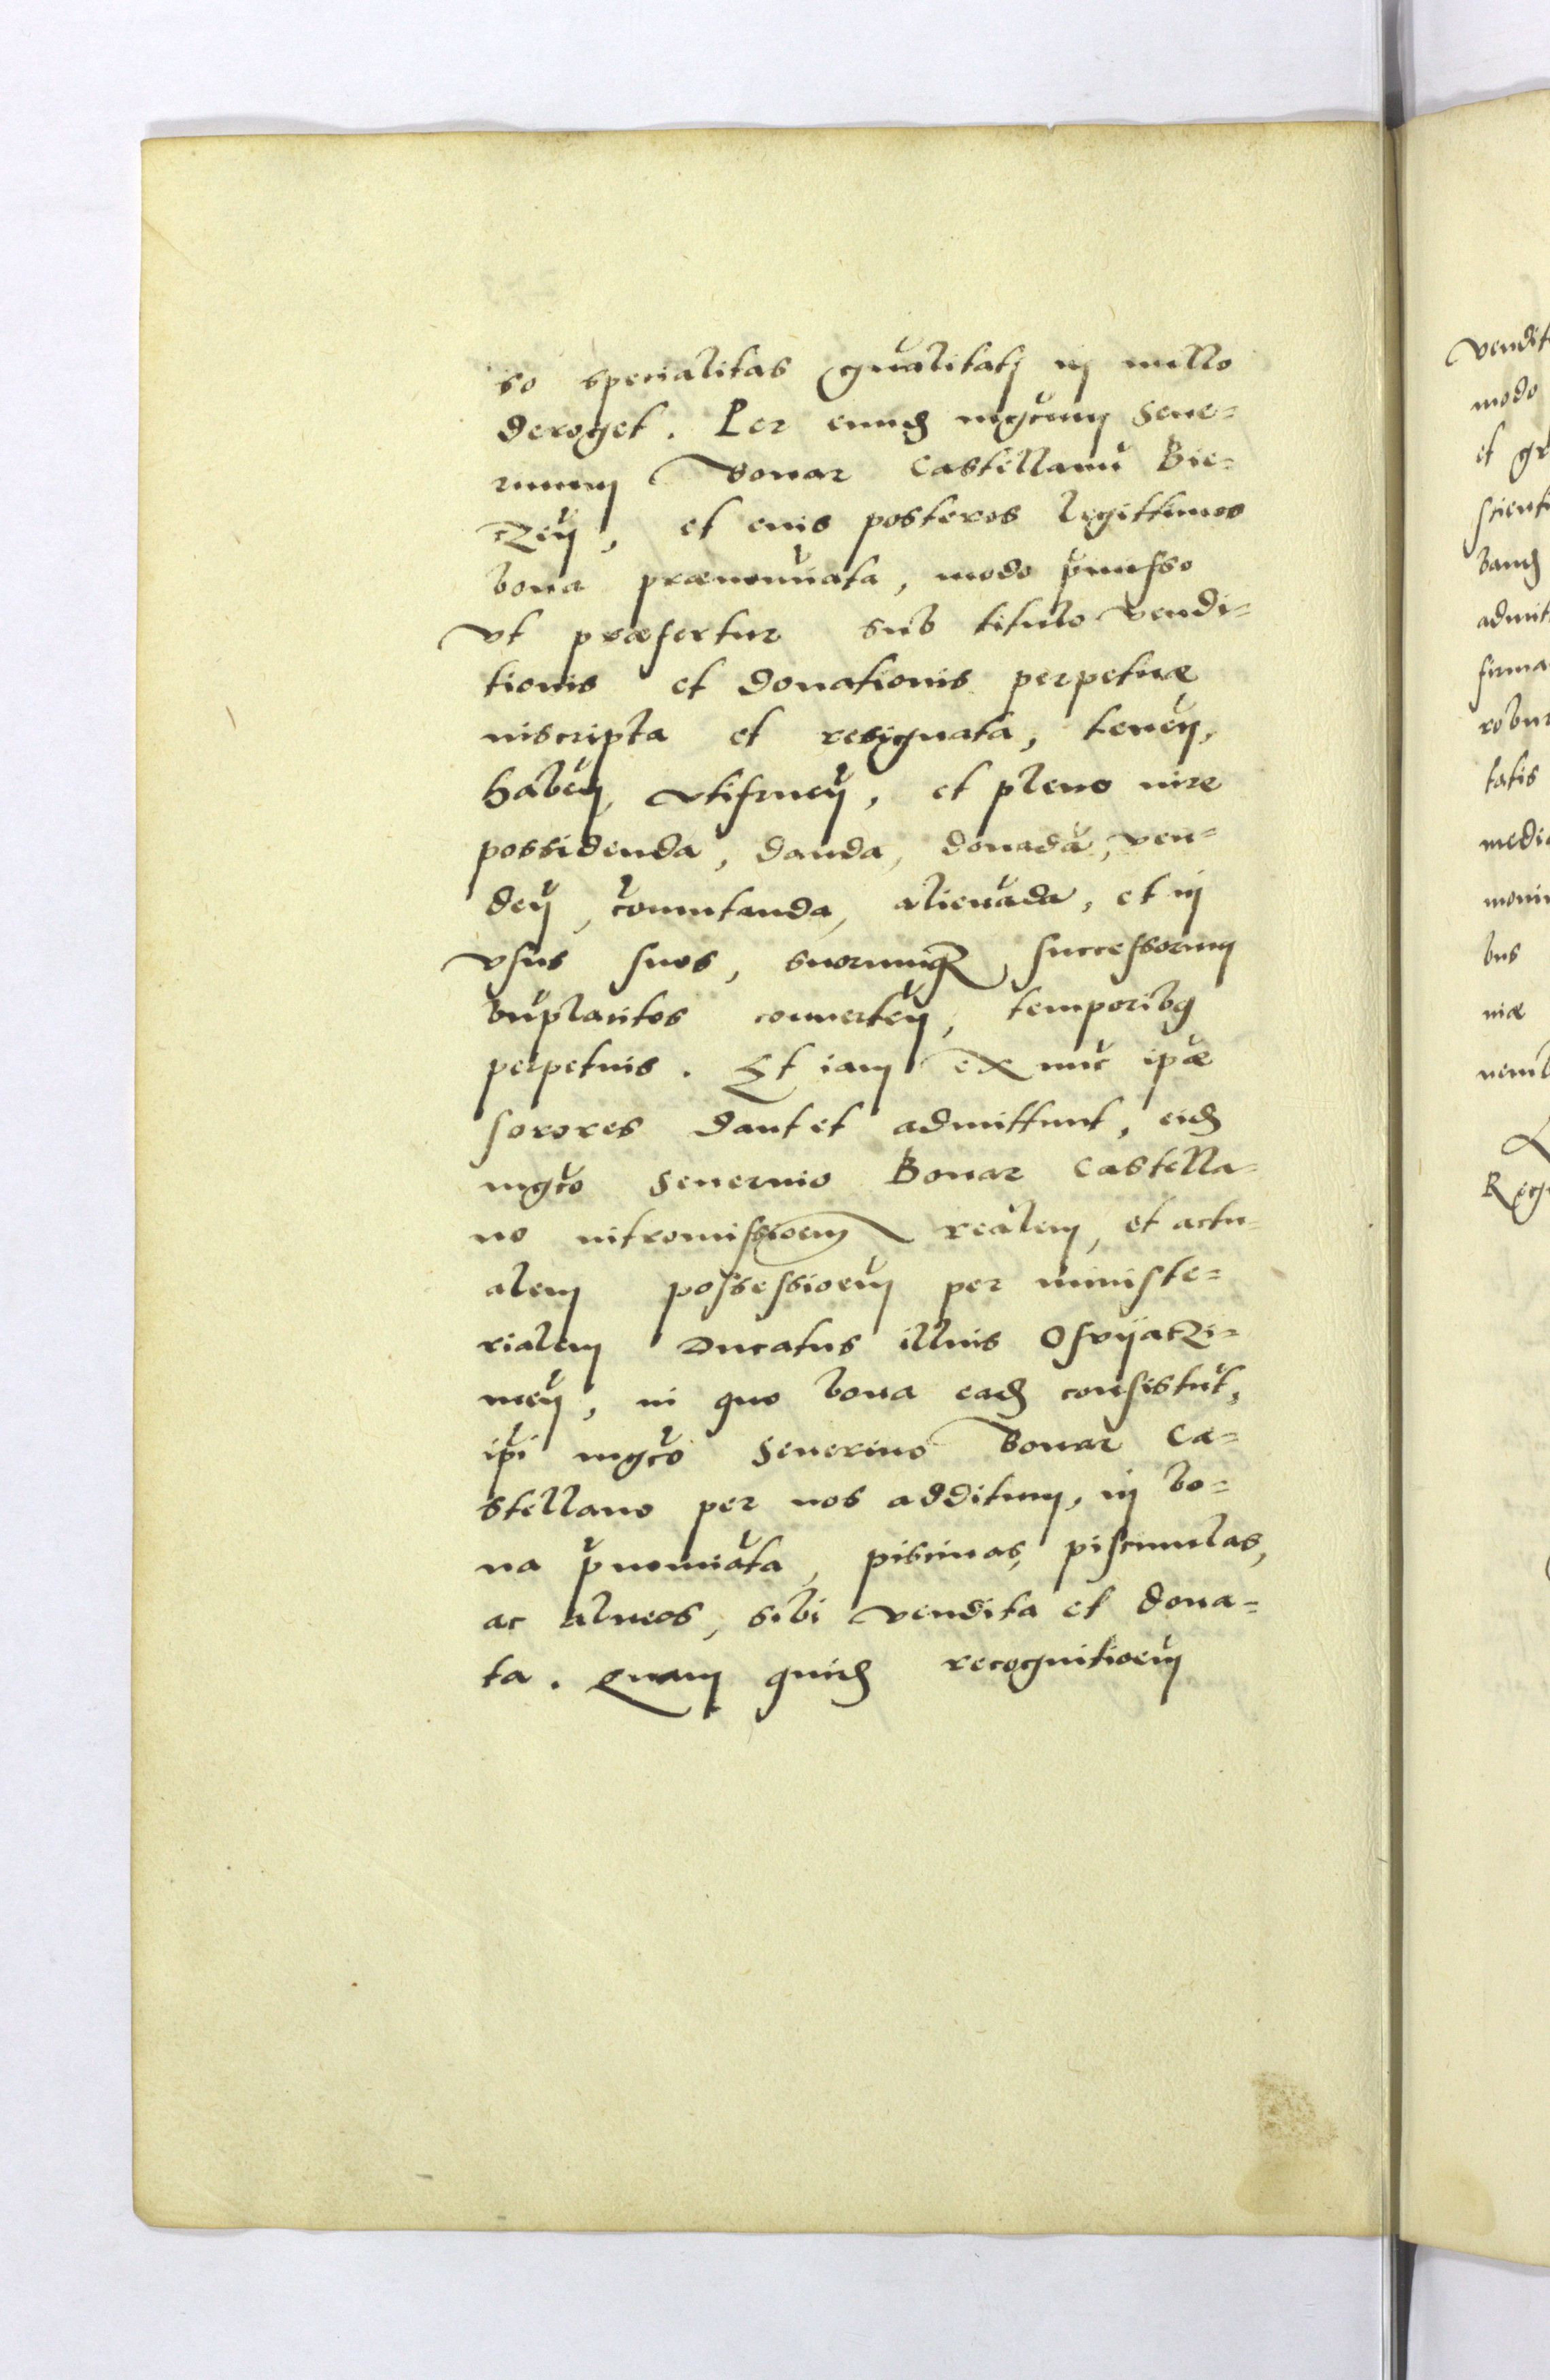 so specialitas gnalitatj in nullo
deroget. Per eund mgcum Seue=
rinum Bonar Castellanu Bie=
czen, et eius posteros legittimos
bona prænomiata, modo pmisso
vt præfertur sub titulo vendi=
tionis et donationis perpetuæ
inscripta et resignata, tenen,
haben, vtifruen, et pleno iure
possidenda, danda, donada, ven=
den, comutanda, alienada, et in
vsus suos, suorumq successorum
bnplacitos conuerten, temporibq
perpetuis. Et iam ex nuc ipæ
sorores dant et admittunt, eid
mgco Seuerino Bonar Castella=
no intromissioem realem, et actu=
alem possessioem per ministe=
rialem Ducatus illius Osvijaczi=
men, in quo bona ead consistut,
ipi mgco Seuerino Bonar Ca=
stellano per nos additum, in bo=
na pnomiata, piscinas, piscinulas,
ac alueos, sibi vendita et dona=
ta. Quam quid recognitioem
vendit
modo
et gr
scient
band
admit
firma
robur
tatis
media
monim
bus
niæ
Regn